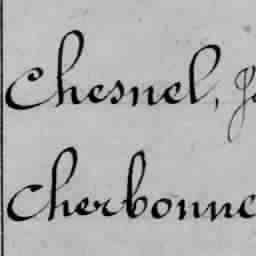 Chesnel,
Cherbonne